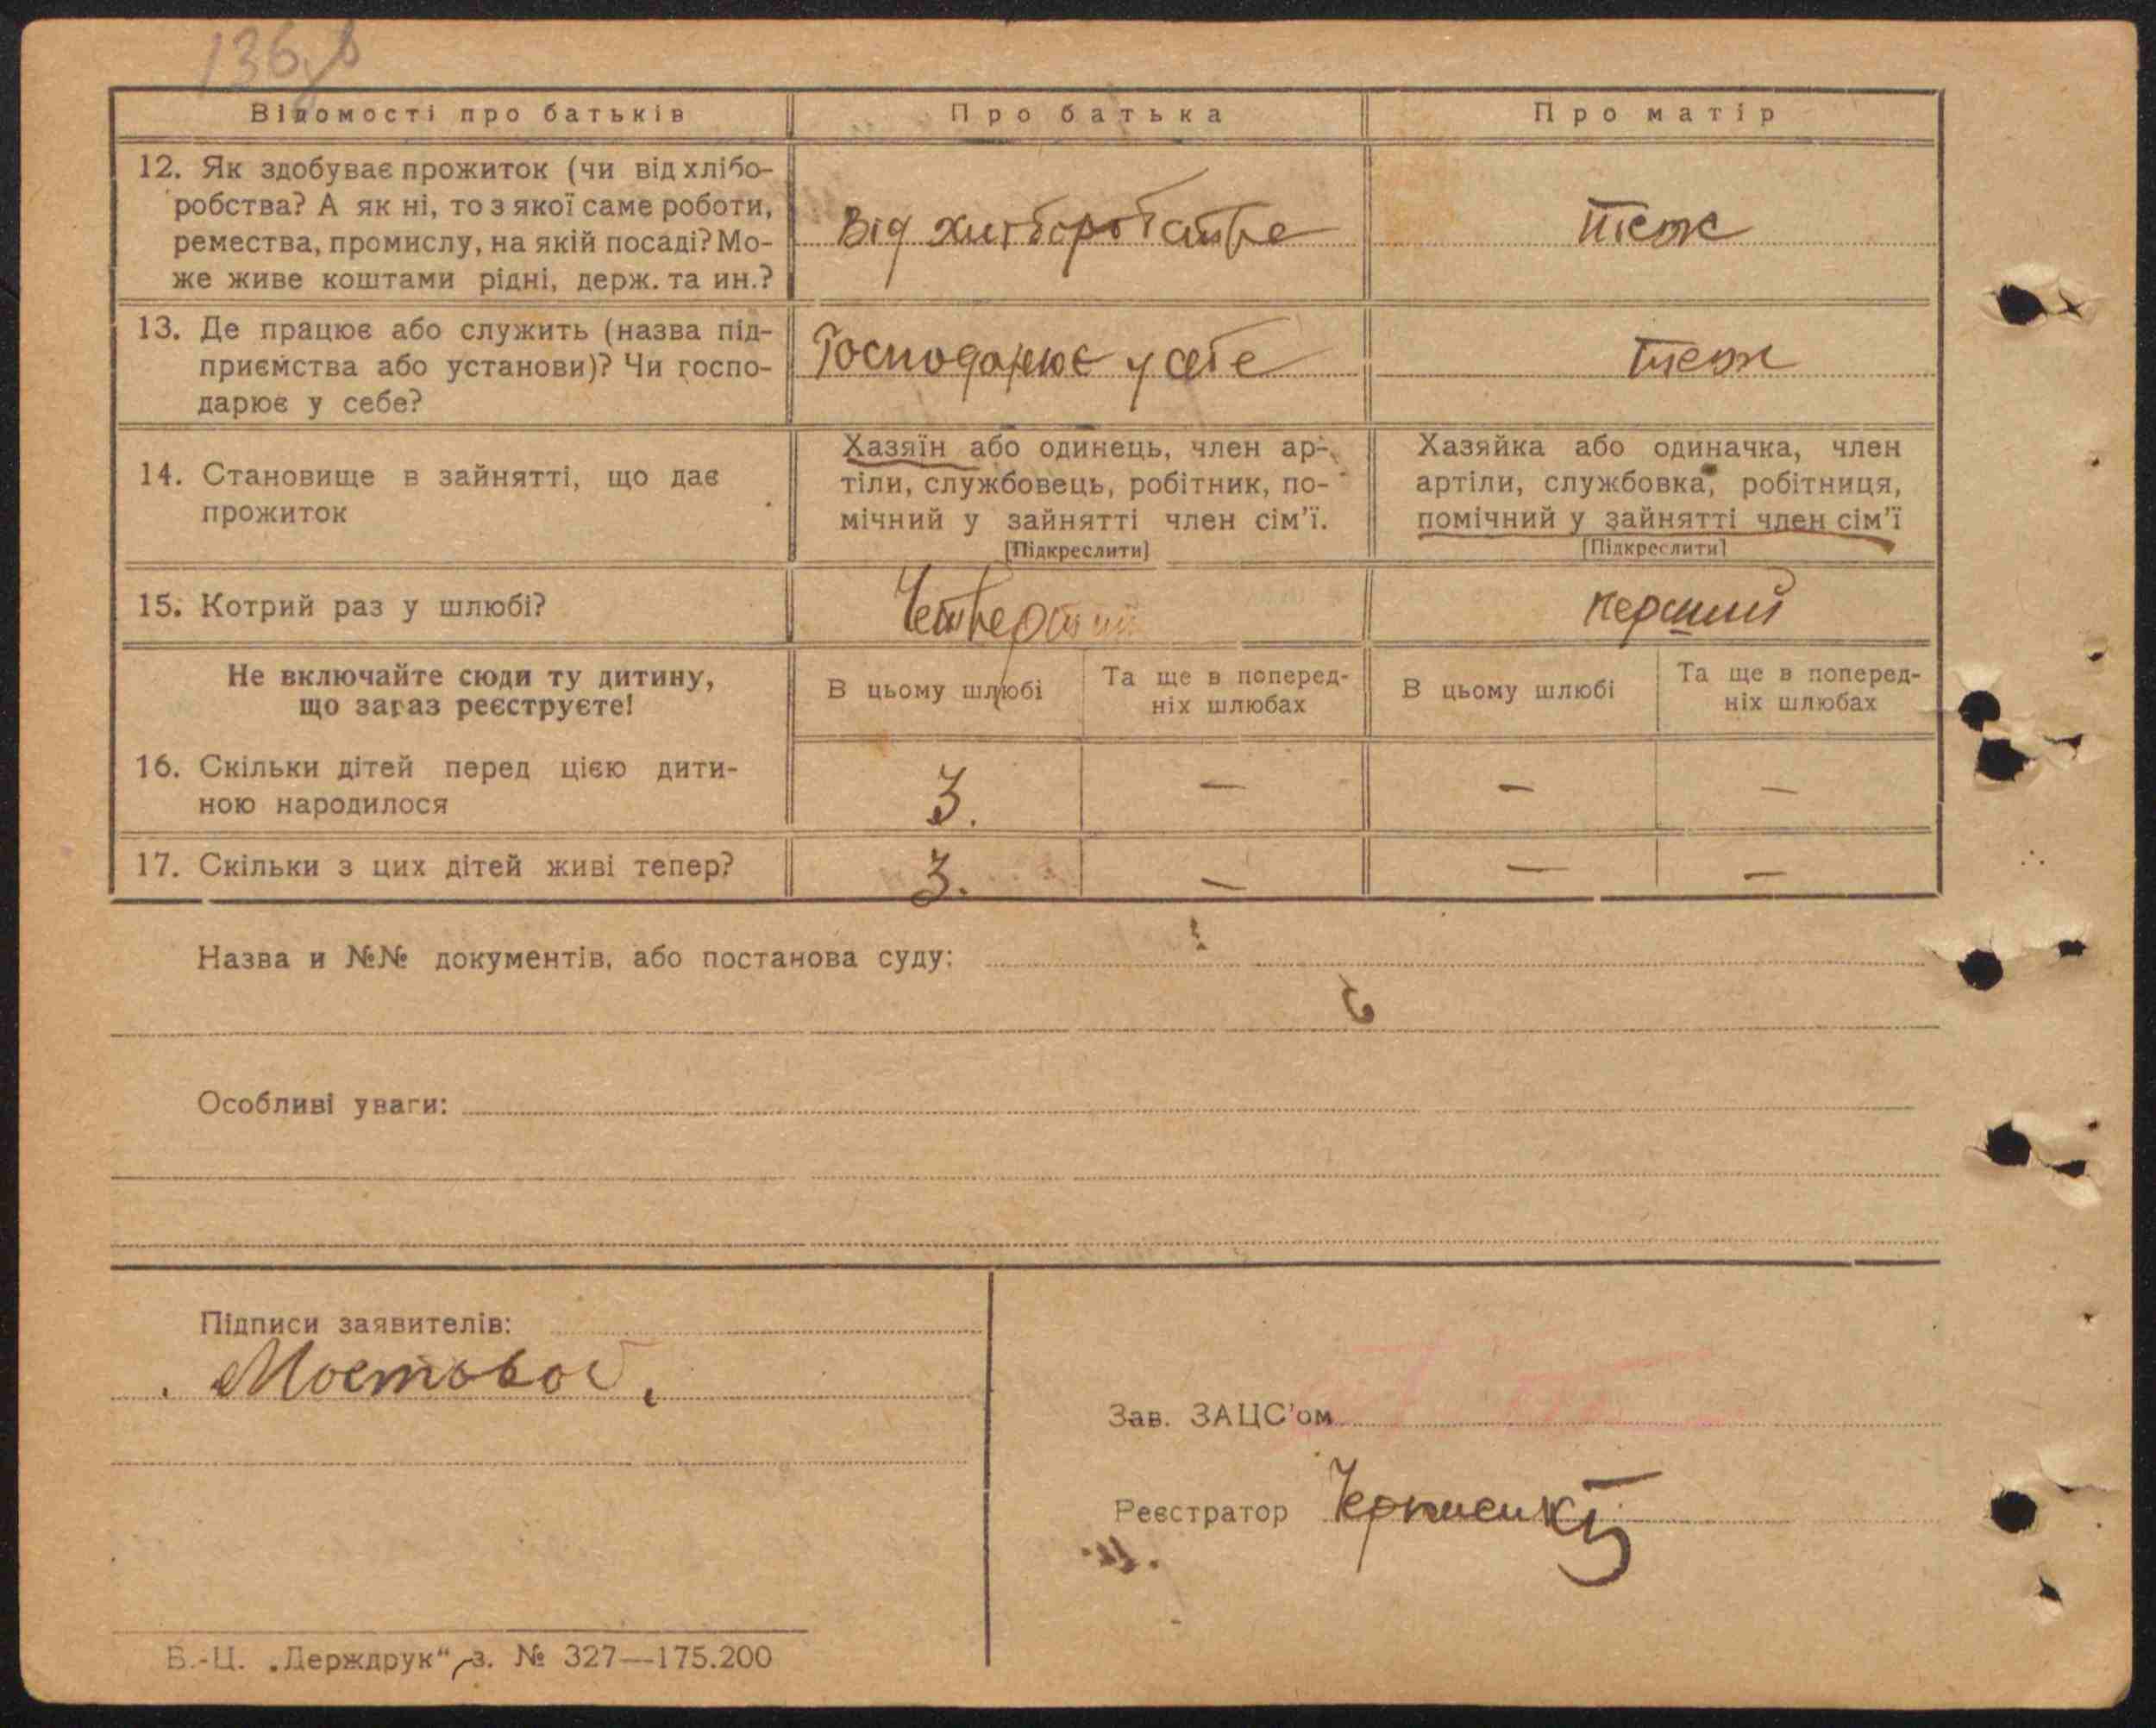 136
Відомості про батьків
Про батька
Про матір
12. Як здобуває прожиток (чи від хлібо-
робства? А як ні, то з якої саме роботи,
ремества, промислу, на якій посаді? Мо-
же живе коштами рідні, держ. та ин.?
Від хліборобства
теж
13. Де працює або служить (назва під-
приємства або установи)? Чи госпо-
дарює у себе?
Господарює у себе
теж
14. Становище в зайнятті, що дає
прожиток
Хазяїн або одинець, член ар-
тіли, службовець, робітник, по-
мічний у зайнятті член сім'ї.
[Підкреслити]
Хазяйка або одиначка, член
артіли, службовка, робітниця,
помічний у зайнятті член сім'ї
[Підкреслити]
15. Котрий раз у шлюбі?
перший
Не включайте сюди ту дитину,
що зараз реєструєте!
В цьому шлюбі
Та ще в поперед-
ніх шлюбах
В цьому шлюбі
Та ще в поперед-
ніх шлюбах
16. Скільки дітей перед цією дити-
ною народилося
3.
—
—
—
17. Скільки з цих дітей живі тепер?
3.
—
—
—
Назва и №№ документів, або постанова суду:
Особливі уваги:
Підписи заявителів:
Мостовой
Зав. ЗАЦС'ом
Реєстратор
Б.-Ц. „Держдрук“, з. № 327—175.200